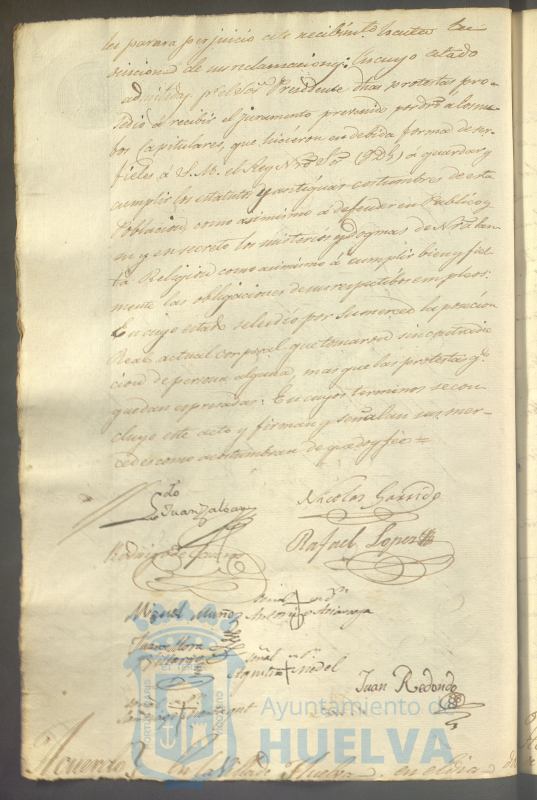 les parara perjuicio este recibimto hasta la de
sicion de sus reclamaciones: En cuyo estado
admitidas pr el Sor Presidente dhas protestas pro-
cedió á recibir el juramento prevenido por dro á los nue-
bos Capitulares, que hicieron en debida forma de ser
fieles á S. M. el Rey Nro Sor (q D g) a guardar y
cumplir los estatutos y antiguas costumbres de esta
Poblacion, como asimismo á defender en Publico y
en secreto los misterios y dogmas de Nra San-
ta Religion como asimismo á cumplir bien y fiel-
mente las obligaciones de sus respectibos empleos:
En cuyo estado se les dió por su merced la posecion
Real actual corporal que tomaron sin contradic
cion de persona alguna, mas que las protestas qe
quedan espresadas: En cuyos terminos se con-
cluyo este acto y firman y señalan sus mer-
cedes como acostumbran de que doy fee =
Ldo
Juan
Nicolas Garrido
Rodrigo
Rafael Lopez
Miguel Muñoz
Señal de
Antonio
Juan Mora
Señal de
Agustin
Juan Redondo
Señal
Santiago
Ayuntamiento de
HUELVA
Acuerdo En la Villa de Huelva en el dia